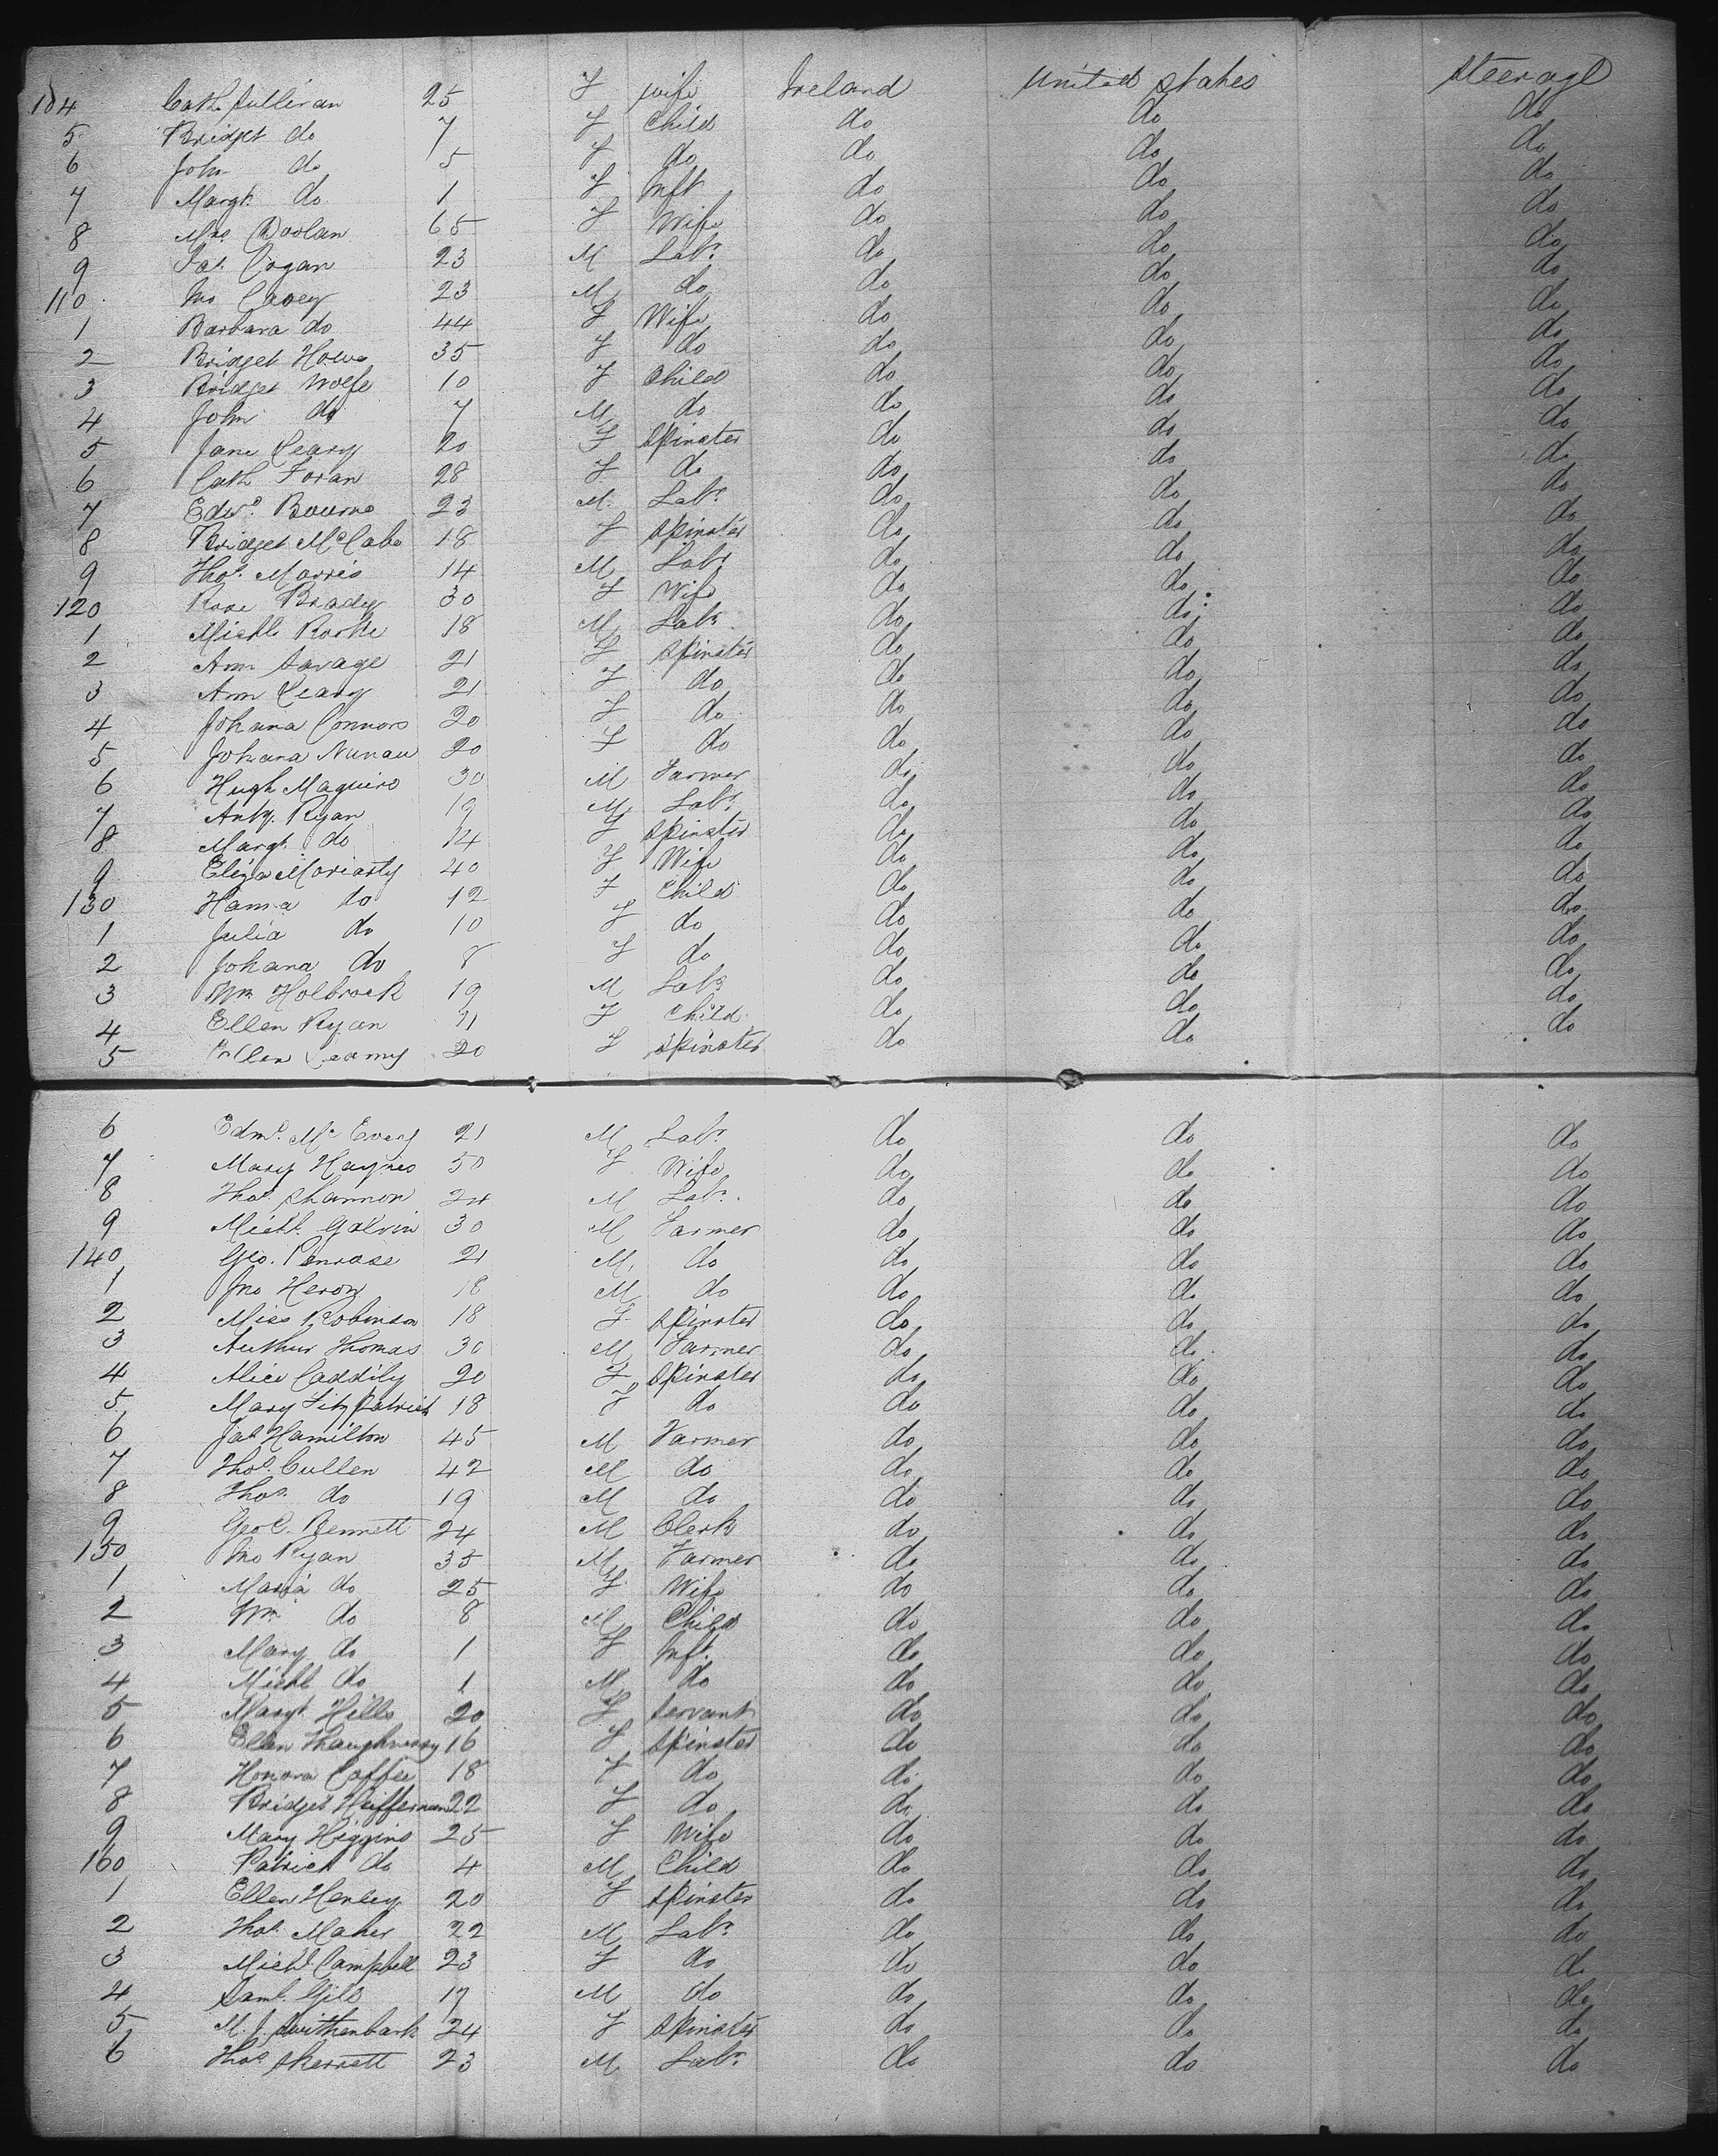 104 Cath Sullivan 25 F wife Ireland United States Steerage
5 Bridget do 7 F Child do do do
6 John do 5 F do do do do
7 Margt. do 1 F Inft do do do
8 Mrs. Doolan 65 F Wife do do do
9 Pat. Cogan 23 M Labr. do do do
110 Jno Cavey 23 M do do do do
1 Barbara do 44 F Wife do do do
2 Bridget Howe 35 F do do do do
3 Bridget Wolfe 10 F Child do do do
4 John do 7 M do do do do
5 Jane Leary 20 F Spinster do do do
6 Cath Foran 28 F do do do do
7 Edwd. Bourne 23 M. Labr. do do do
8 Bridget McCabe 18 F Spinster do do do
9 Thos. Morris 14 M Labr do do do
120 Rose Brady 30 F Wife do do do
1 Michl Rorke 18 M Labr. do do do
2 Ann Savage 21 F Spinster do do do
3 Ann Leary 21 F do do do do
4 Johanna Connors 20 F do do do do
5 Johana Nunan 20 F do do do do
6 Hugh Maguire 30 M Farmer do do do
7 Anty. Ryan 19 M Labr. do do do
8 Margt. do 14 F Spinster do do do
9 Eliza Moriarty 40 F Wife do do do
130 Hanna do 12 F Child do do do
1 Julia do 10 F do do do do
2 Johana do 8 F do do do do
3 Wm Holbrook 19 M Labr do do do
4 Ellen Ryan 11 F Child do do do
5 Ellen Leamy 20 F Spinster do do do
6 Edmd. Mc 21 M Labr. do do do
7 Mary Haynes 50 F Wife do do do
8 Thos. Shannon 24 M Labr. do do do
9 Michl. Galvin 30 M Farmer do do do
140 Geo. Penrose 21 M. do do do do
1 Jno Heron 18 M do do do do
2 Miss Robinson 18 F. Spinster do do do
3 Arthur Thomas 30 M Farmer do do do
4 Alice Caddily 20 F Spinster do do do
5 Mary Fitzpatrick 18 F do do do do
6 Jas Hamilton 45 M Farmer do do do
7 Thos. Cullen 42 M do do do do
8 Thos. do 19 M do do do do
9 Geo C. Bennett 24 M Clerk do do do
150 Jno Ryan 35 M Farmer do do do
1 Maria do 25 F Wife do do do
2 Wm do 8 M Child do do do
3 Mary do 1 F Inft. do do do
4 Michl do 1 M do do do do
5 Margt. Hills 20 F Servant do do do
6 Ellen Shaughnessy 16 F Spinster do do do
7 Honora Coffee 18 F do do do do
8 Bridget Heffernan 22 F do do do do
9 Mary Higgins 25 F Wife do do do
160 Patrick do 4 M Child do do do
1 Ellen Henley 20 F Spinster do do do
2 Thos. Maher 22 M Labr. do do do
3 Michl Campbell 23 F do do do do
4 Saml. Gill 17 M do do do do
5 M. J. Swithenbank 24 F Spinster do do do
6 Thos Skerrett 23 M Labr. do do do